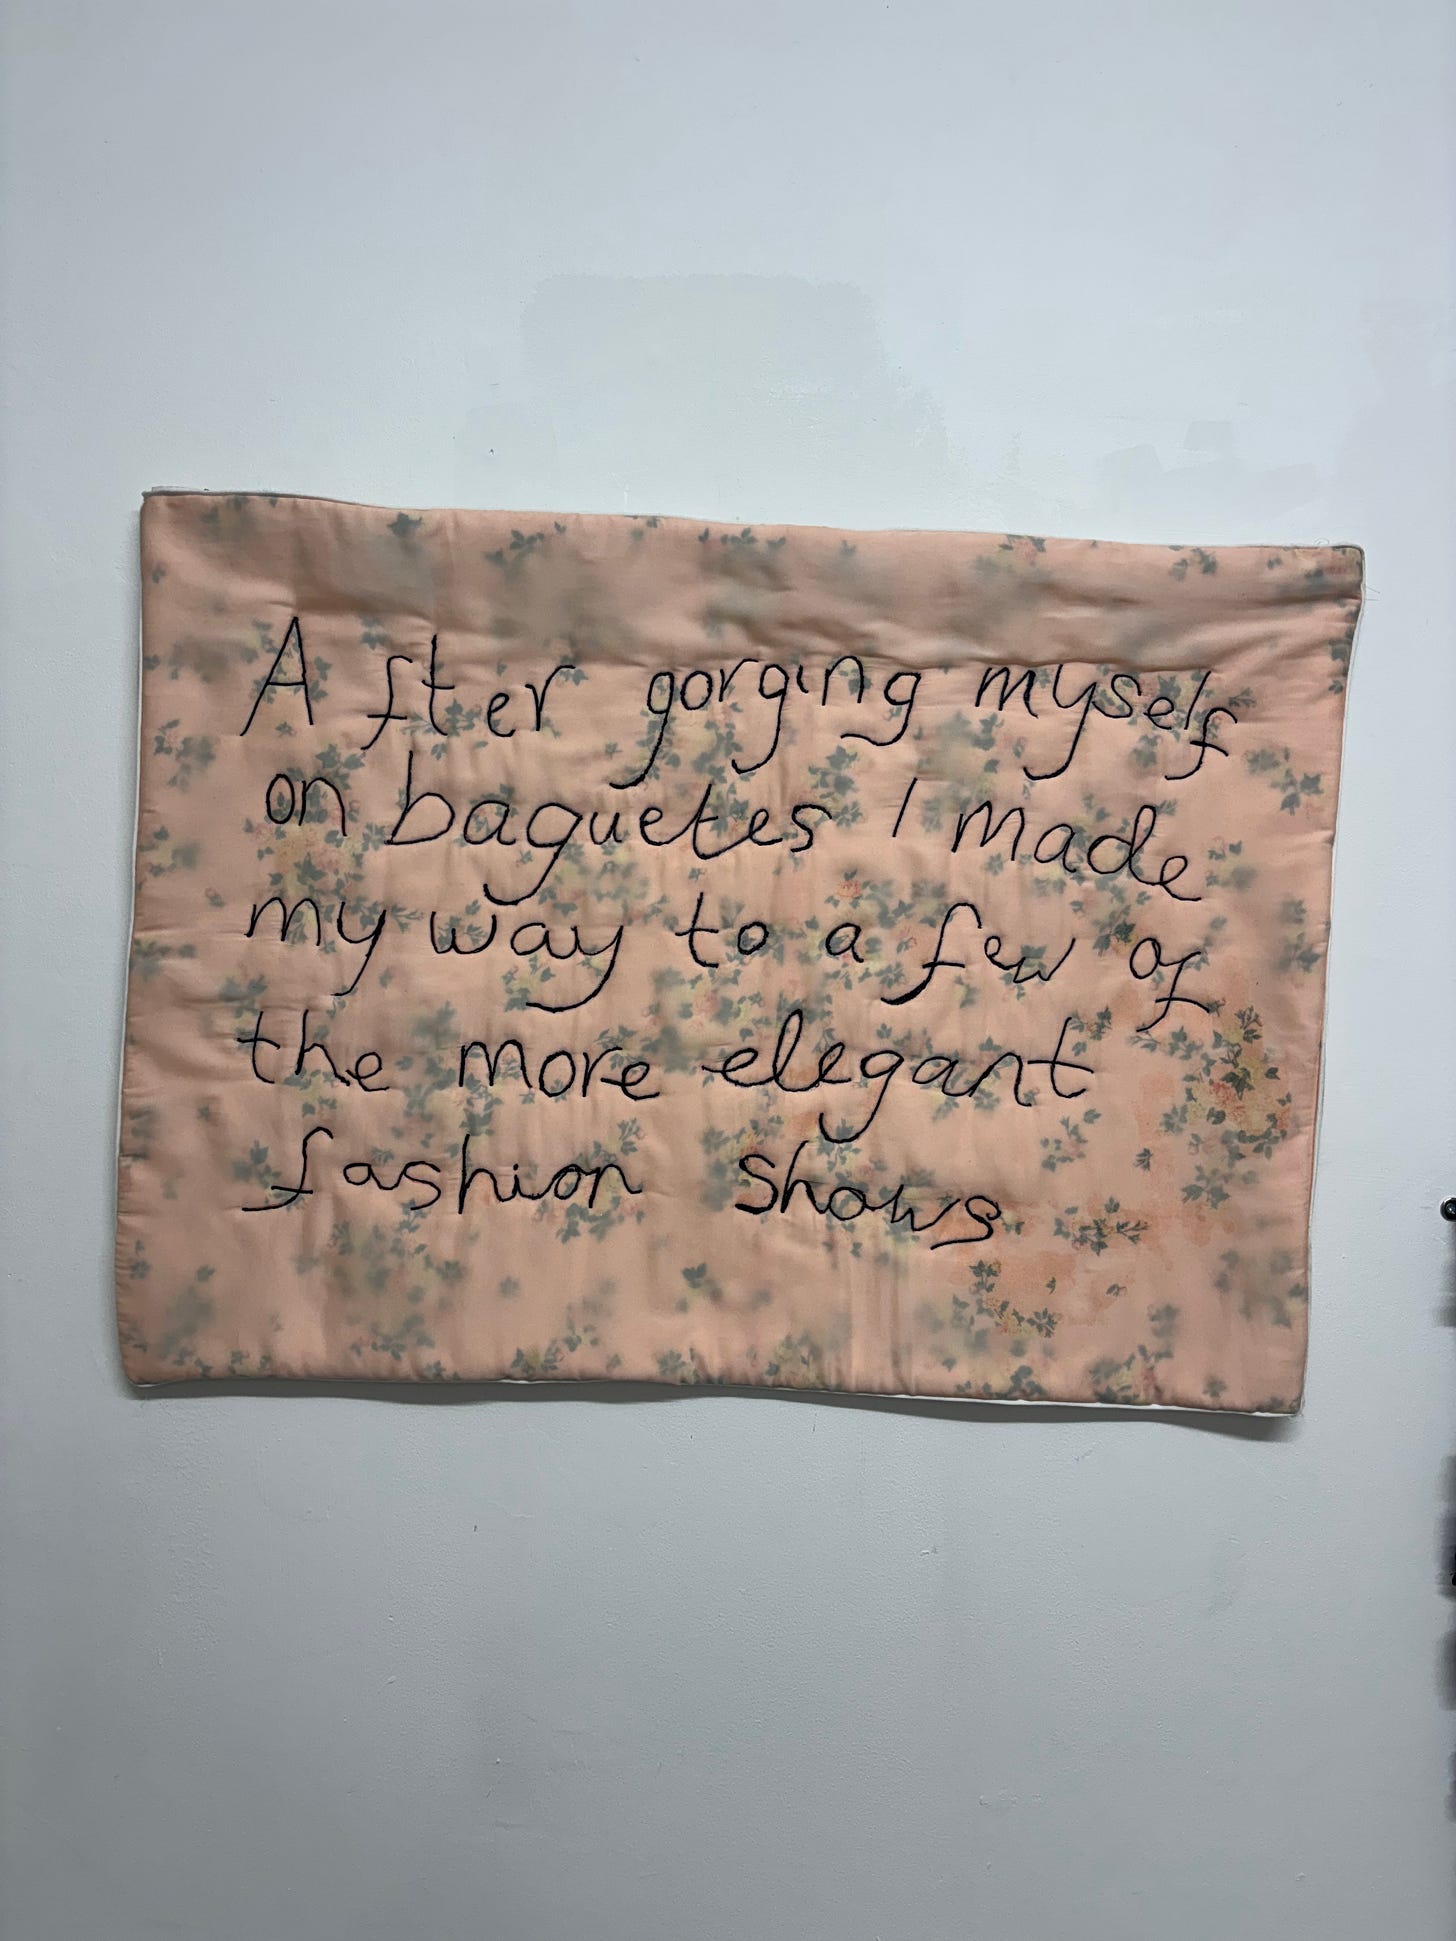 After gorging myself
on baguetes I made
my way to a few of
the more elegant
fashion shows